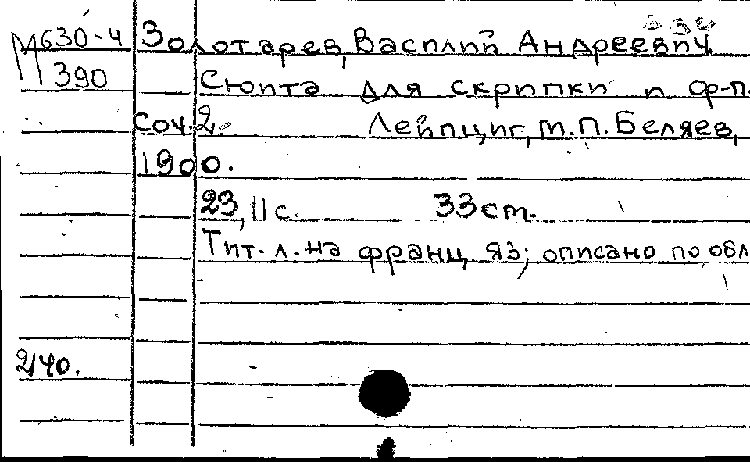 М 630-4 Золотарев, Василий Андреевич
390 Сюита для скрипки и ф-п.
Соч. 2. Лейпциг, М.П. Беляев,
1900.
23, 11 с. 33 cm.
Тит. л. на франц. яз; описано по обл
240.